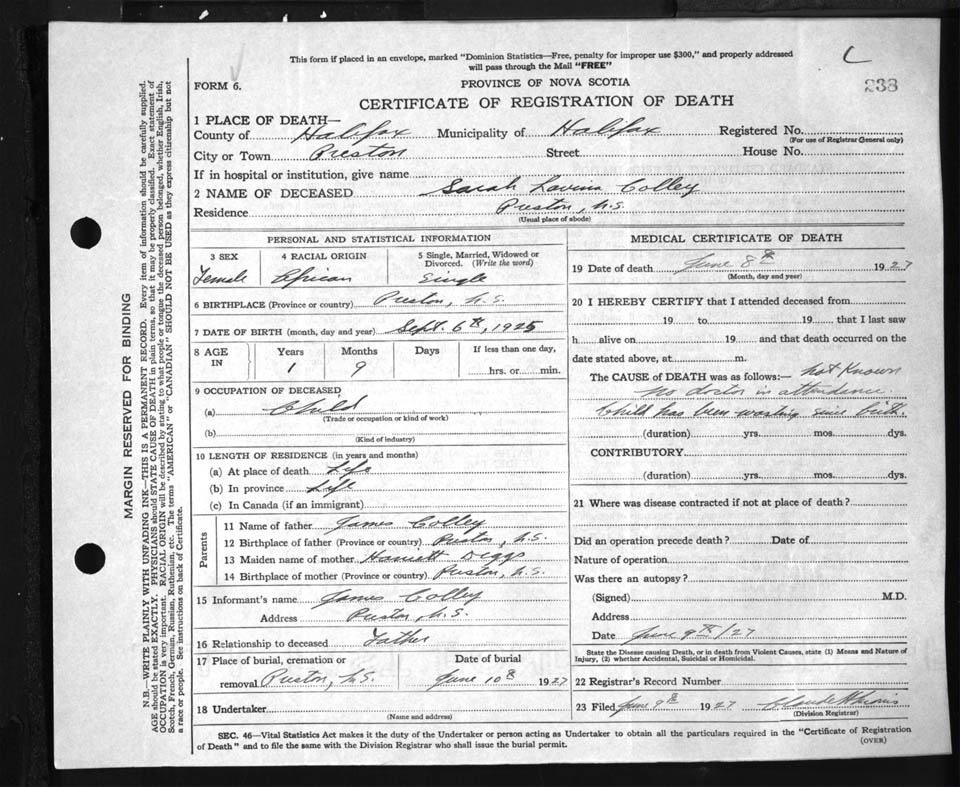 This form if placed in an envelope, marked "Dominion Statistics—Free, penalty for improper use $300," and properly addressed
will pass through the Mail "FREE"
C
238
FORM 6.
PROVINCE OF NOVA SCOTIA
CERTIFICATE OF REGISTRATION OF DEATH
1 PLACE OF DEATH—
County of Halifax Municipality of Halifax Registered No.
(For use of Registrar General only)
City or Town Preston Street House No.
If in hospital or institution, give name
2 NAME OF DECEASED Sarah Lavina Colley
Residence Preston, N.S.
(Usual place of abode)
PERSONAL AND STATISTICAL INFORMATION
3 SEX 4 RACIAL ORIGIN 5 Single, Married, Widowed or Divorced. (Write the word)
Female African Single
6 BIRTHPLACE (Province or country) Preston, N.S.
7 DATE OF BIRTH (month, day and year) Sept. 6th, 1925
8 AGE IN Years Months Days If less than one day,
1 9 hrs. or min.
9 OCCUPATION OF DECEASED
(a) Child
(Trade or occupation or kind of work)
(b)
(Kind of industry)
10 LENGTH OF RESIDENCE (in years and months)
(a) At place of death Life
(b) In province Life
(c) In Canada (if an immigrant)
Parents
11 Name of father James Colley
12 Birthplace of father (Province or country) Preston, N.S.
13 Maiden name of mother Harriett Diggs
14 Birthplace of mother (Province or country) Preston, N.S.
15 Informant's name James Colley
Address Preston, N.S.
16 Relationship to deceased Father
17 Place of burial, cremation or Date of burial
removal Preston, N.S. June 10th 1927
18 Undertaker
(Name and address)
MEDICAL CERTIFICATE OF DEATH
19 Date of death June 8th 1927
(Month, day and year)
20 I HEREBY CERTIFY that I attended deceased from
19 to 19 that I last saw
h alive on 19 and that death occurred on the
date stated above, at m.
The CAUSE of DEATH was as follows:— not known
no doctor in attendance.
Child has been wasting since birth.
(duration) yrs. mos. dys.
CONTRIBUTORY
(duration) yrs. mos. dys.
21 Where was disease contracted if not at place of death?
Did an operation precede death? Date of
Nature of operation
Was there an autopsy?
(Signed) M.D.
Address
Date June 9th/27
State the Disease causing Death, or in death from Violent Causes, state (1) Means and Nature of
Injury, (2) whether Accidental, Suicidal or Homicidal.
22 Registrar's Record Number
23 Filed June 9th 1927
(Division Registrar)
SEC. 46—Vital Statistics Act makes it the duty of the Undertaker or person acting as Undertaker to obtain all the particulars required in the "Certificate of Registration
of Death" and to file the same with the Division Registrar who shall issue the burial permit.
(OVER)
MARGIN RESERVED FOR BINDING
N.B.—WRITE PLAINLY WITH UNFADING INK—THIS IS A PERMANENT RECORD. Every item of information should be carefully supplied.
AGE should be stated EXACTLY. PHYSICIANS should STATE CAUSE OF DEATH in plain terms, so that it may be properly classified. Exact statement of
OCCUPATION is very important. RACIAL ORIGIN will be described by stating to what people or tongue the deceased person belonged, whether English, Irish,
Scotch, French, German, Russian, Ruthenian, etc. The terms "AMERICAN" or "CANADIAN" SHOULD NOT BE USED as they express citizenship but not
a race or people. See instructions on back of Certificate.